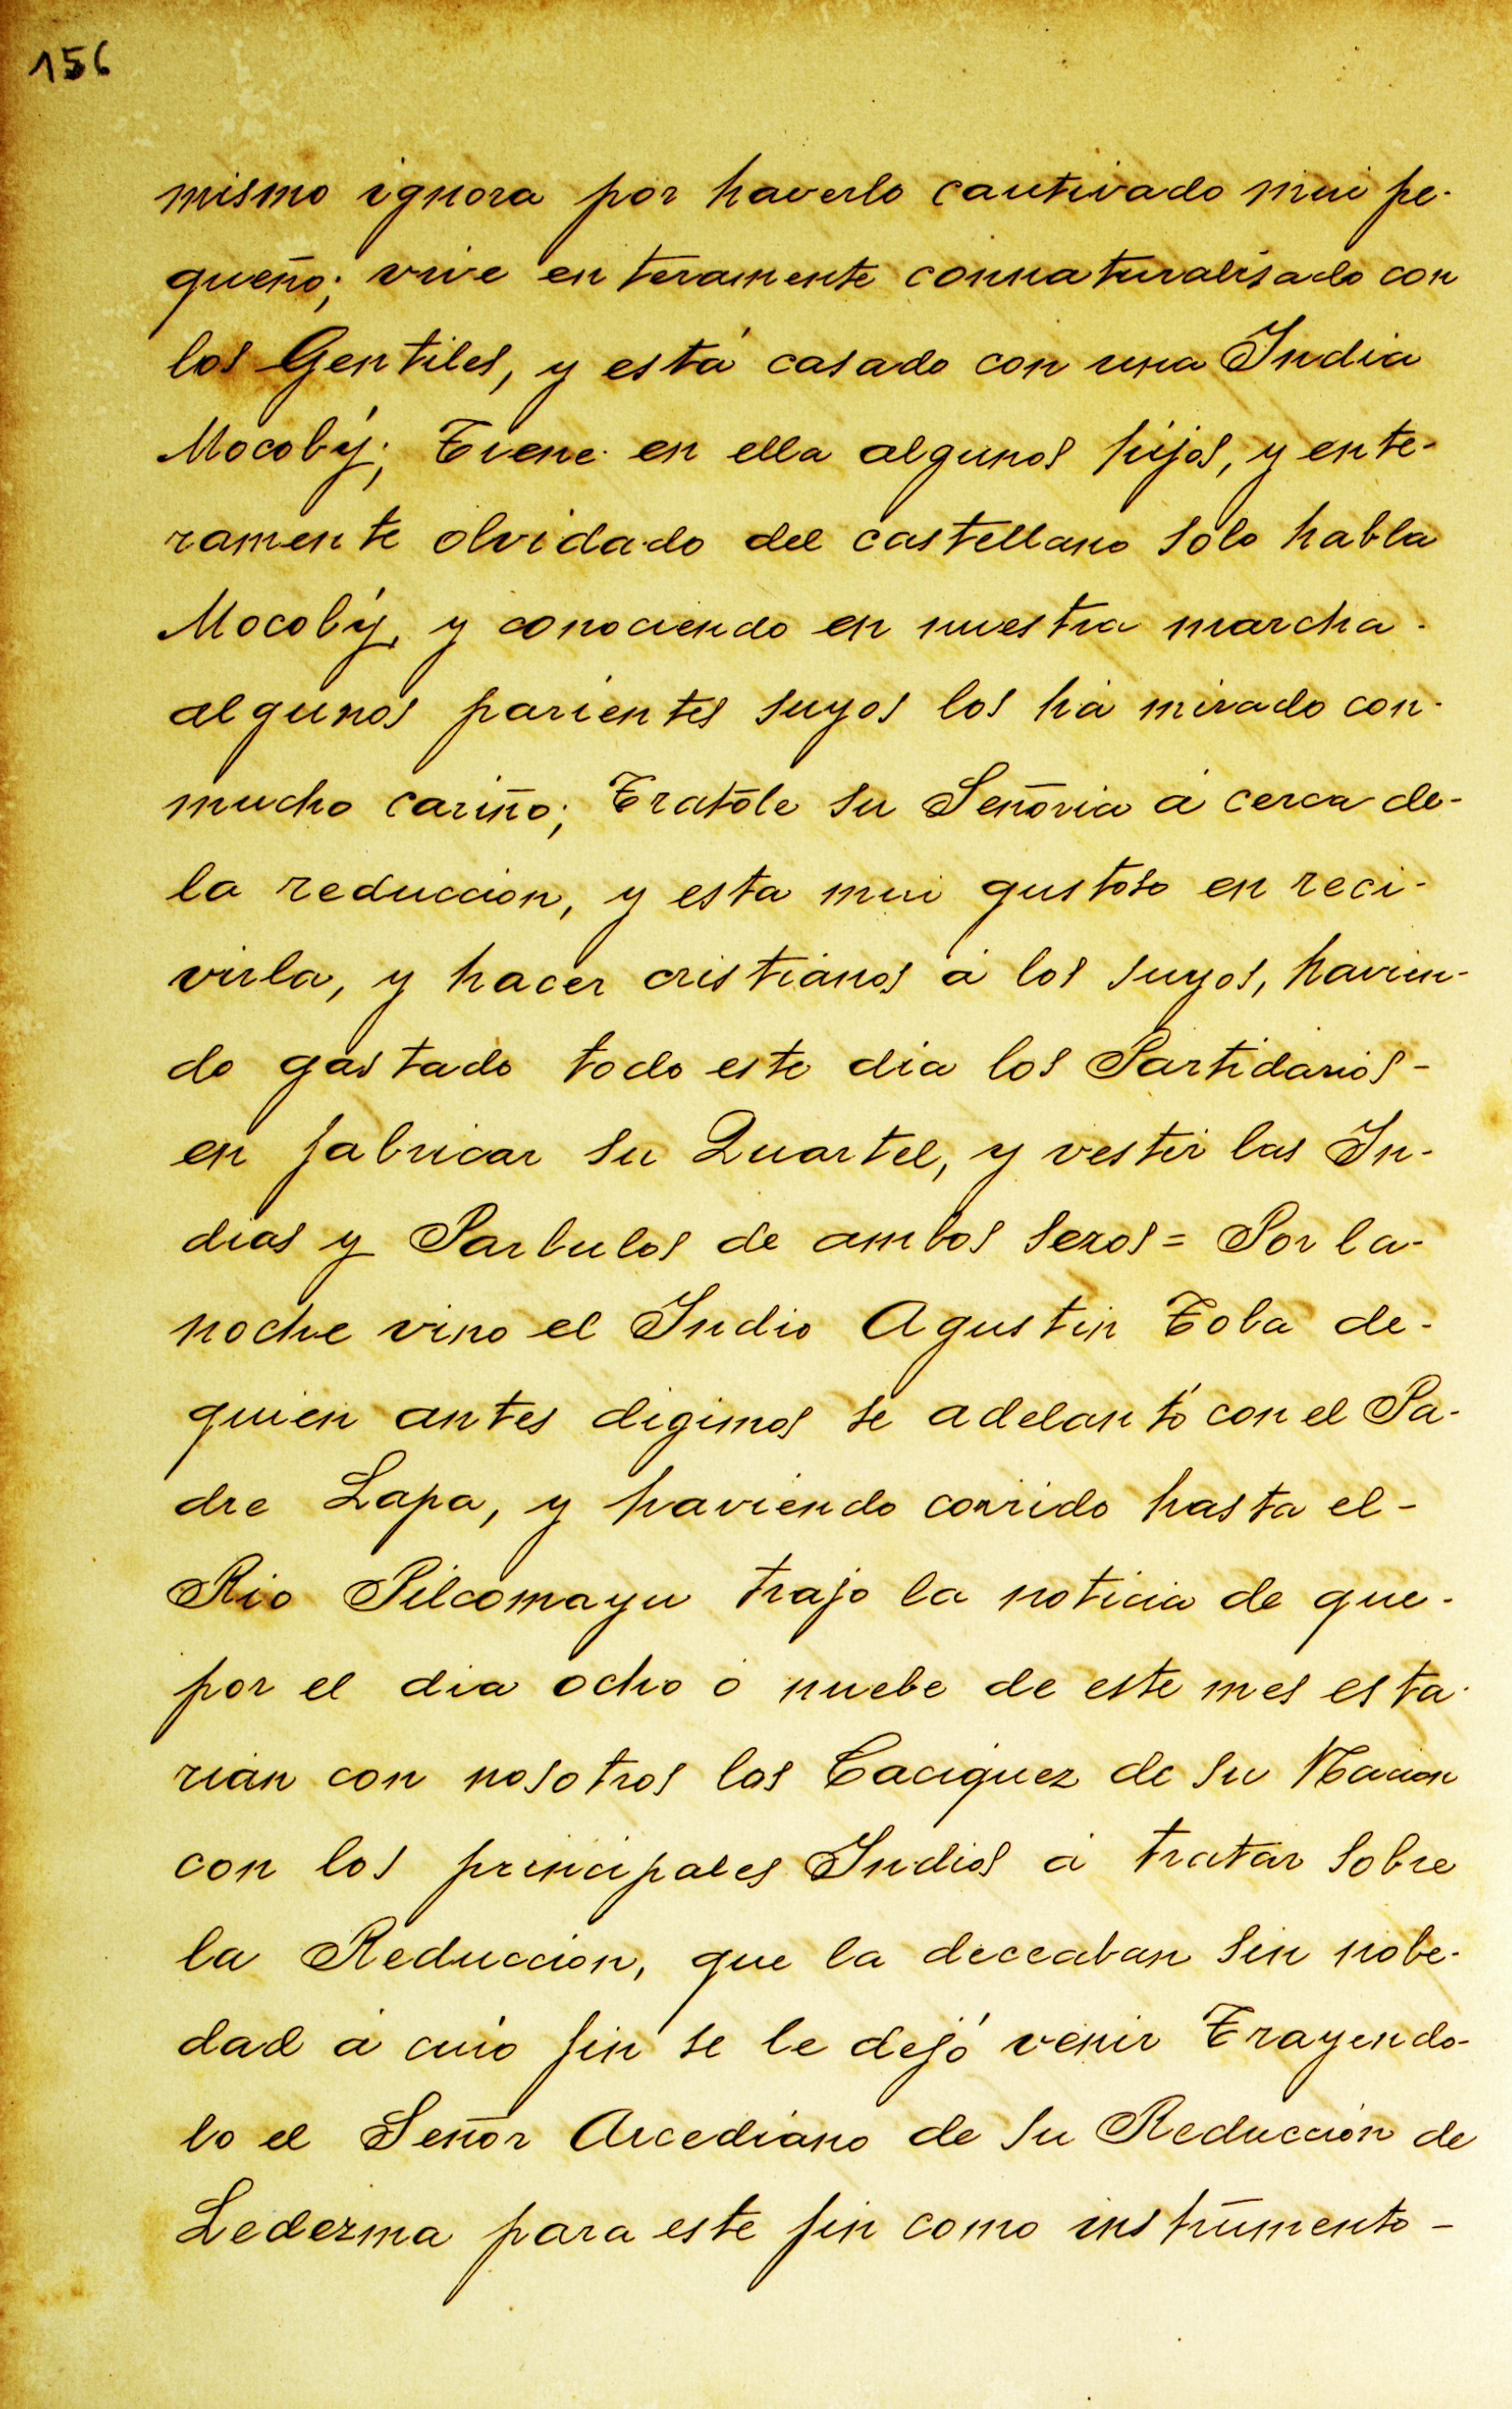 156
mismo ignora por haverlo cautivado mui pe-
queño; vive enteramente connaturalisado con
los Gentiles, y está casado con una India
Mocobý; Tiene en ella algunos hijos, y ente-
ramente olvidado del castellano solo habla
Mocobý, y conociendo en nuestra marcha
algunos parientes suyos los há mirado con-
mucho cariño; Tratóle su Señoria á cerca de-
la reduccion, y esta mui gustoso en reci-
virla, y hacer cristianos á los suyos, havien-
do gastado todo este dia los Partidarios-
en fabricar su Quartel, y vestir las In-
dias y Parbulos de ambos sexos = Por la-
noche vino el Indio Agustin Toba de-
quien antes digimos se adelantó con el Pa-
dre Lapa, y haviendo corrido hasta el-
Rio Pilcomayu trajo la noticia de que-
por el dia ocho ó nuebe de este mes esta-
rian con nosotros los Caciquez de su Nacion
con los principales Indios á tratar sobre
la Reduccion, que la deceaban sin nobe-
dad á cuio fin se le dejó venir Trayendo-
lo el Señor Arcediano de su Reduccion de
Lederma para este fin como instrumento-